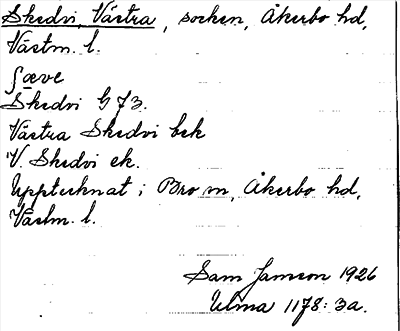 Skedvi, Västra, socken, Åkerbo hd,
Västm. l.
ʃæve
Skedvi G 73.
Västra Skedvi bek
V. Skedvi ek.
Upptecknat i Bro sn, Åkerbo hd,
Västm. l.
Sam Jansson 1926
Ulma 1178: 3a.